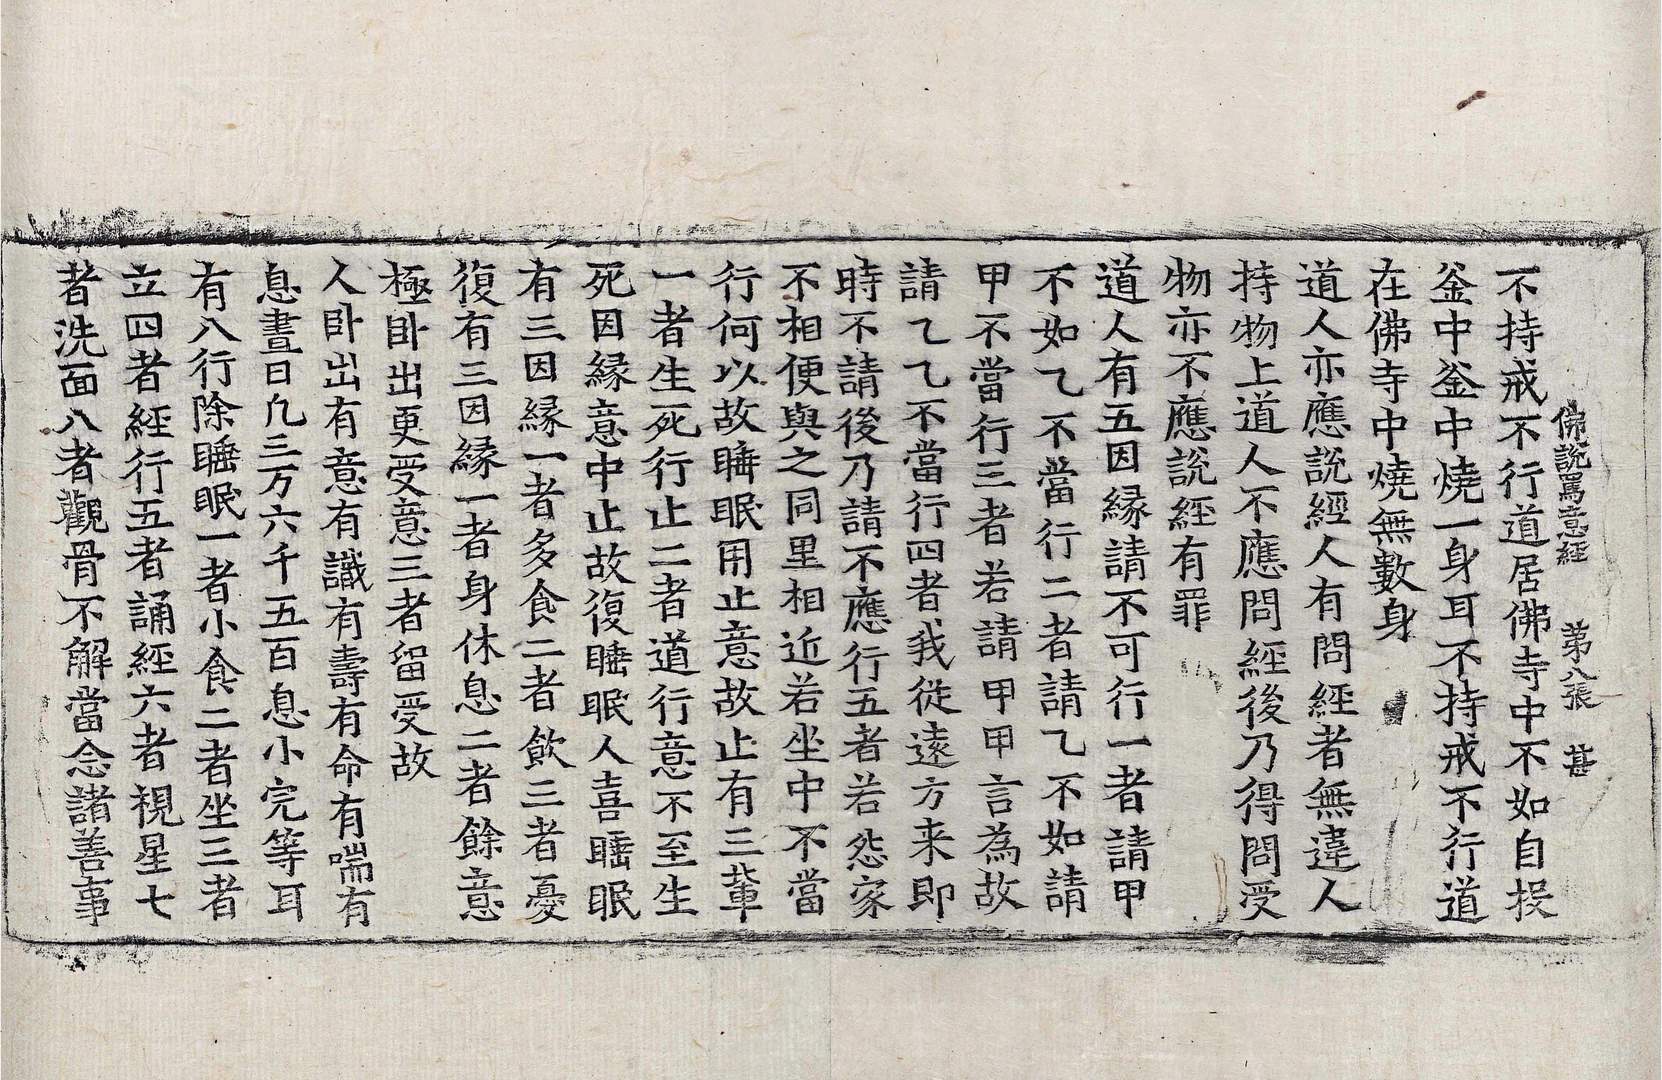 佛說罵意經 第八張 甚
不持戒不行道居佛寺中不如自投
釜中釜中燒一身耳不持戒不行道
在佛寺中燒無數身
道人亦應說經人有問經者無違人
持物上道人不應問經後乃得問受
物亦不應說經有罪
道人有五因縁請不可行一者請甲
不如乙不當行二者請乙不如請
甲不當行三者若請甲甲言為故
請乙乙不當行四者我從遠方来即
時不請後乃請不應行五者若怨家
不相便與之同里相近若坐中不當
行何以故睡眠用止意故止有三輩
一者生死行止二者道行意不至生
死因縁意中止故復睡眠人喜睡眠
有三因縁一者多食二者飲三者憂
復有三因縁一者身休息二者餘意
極卧出更受意三者留受故
人卧出有意有識有壽有命有喘有
息晝日凢三万六千五百息小完等耳
有八行除睡眠一者小食二者坐三者
立四者經行五者誦經六者視星七
者洗面八者觀骨不解當念諸善事